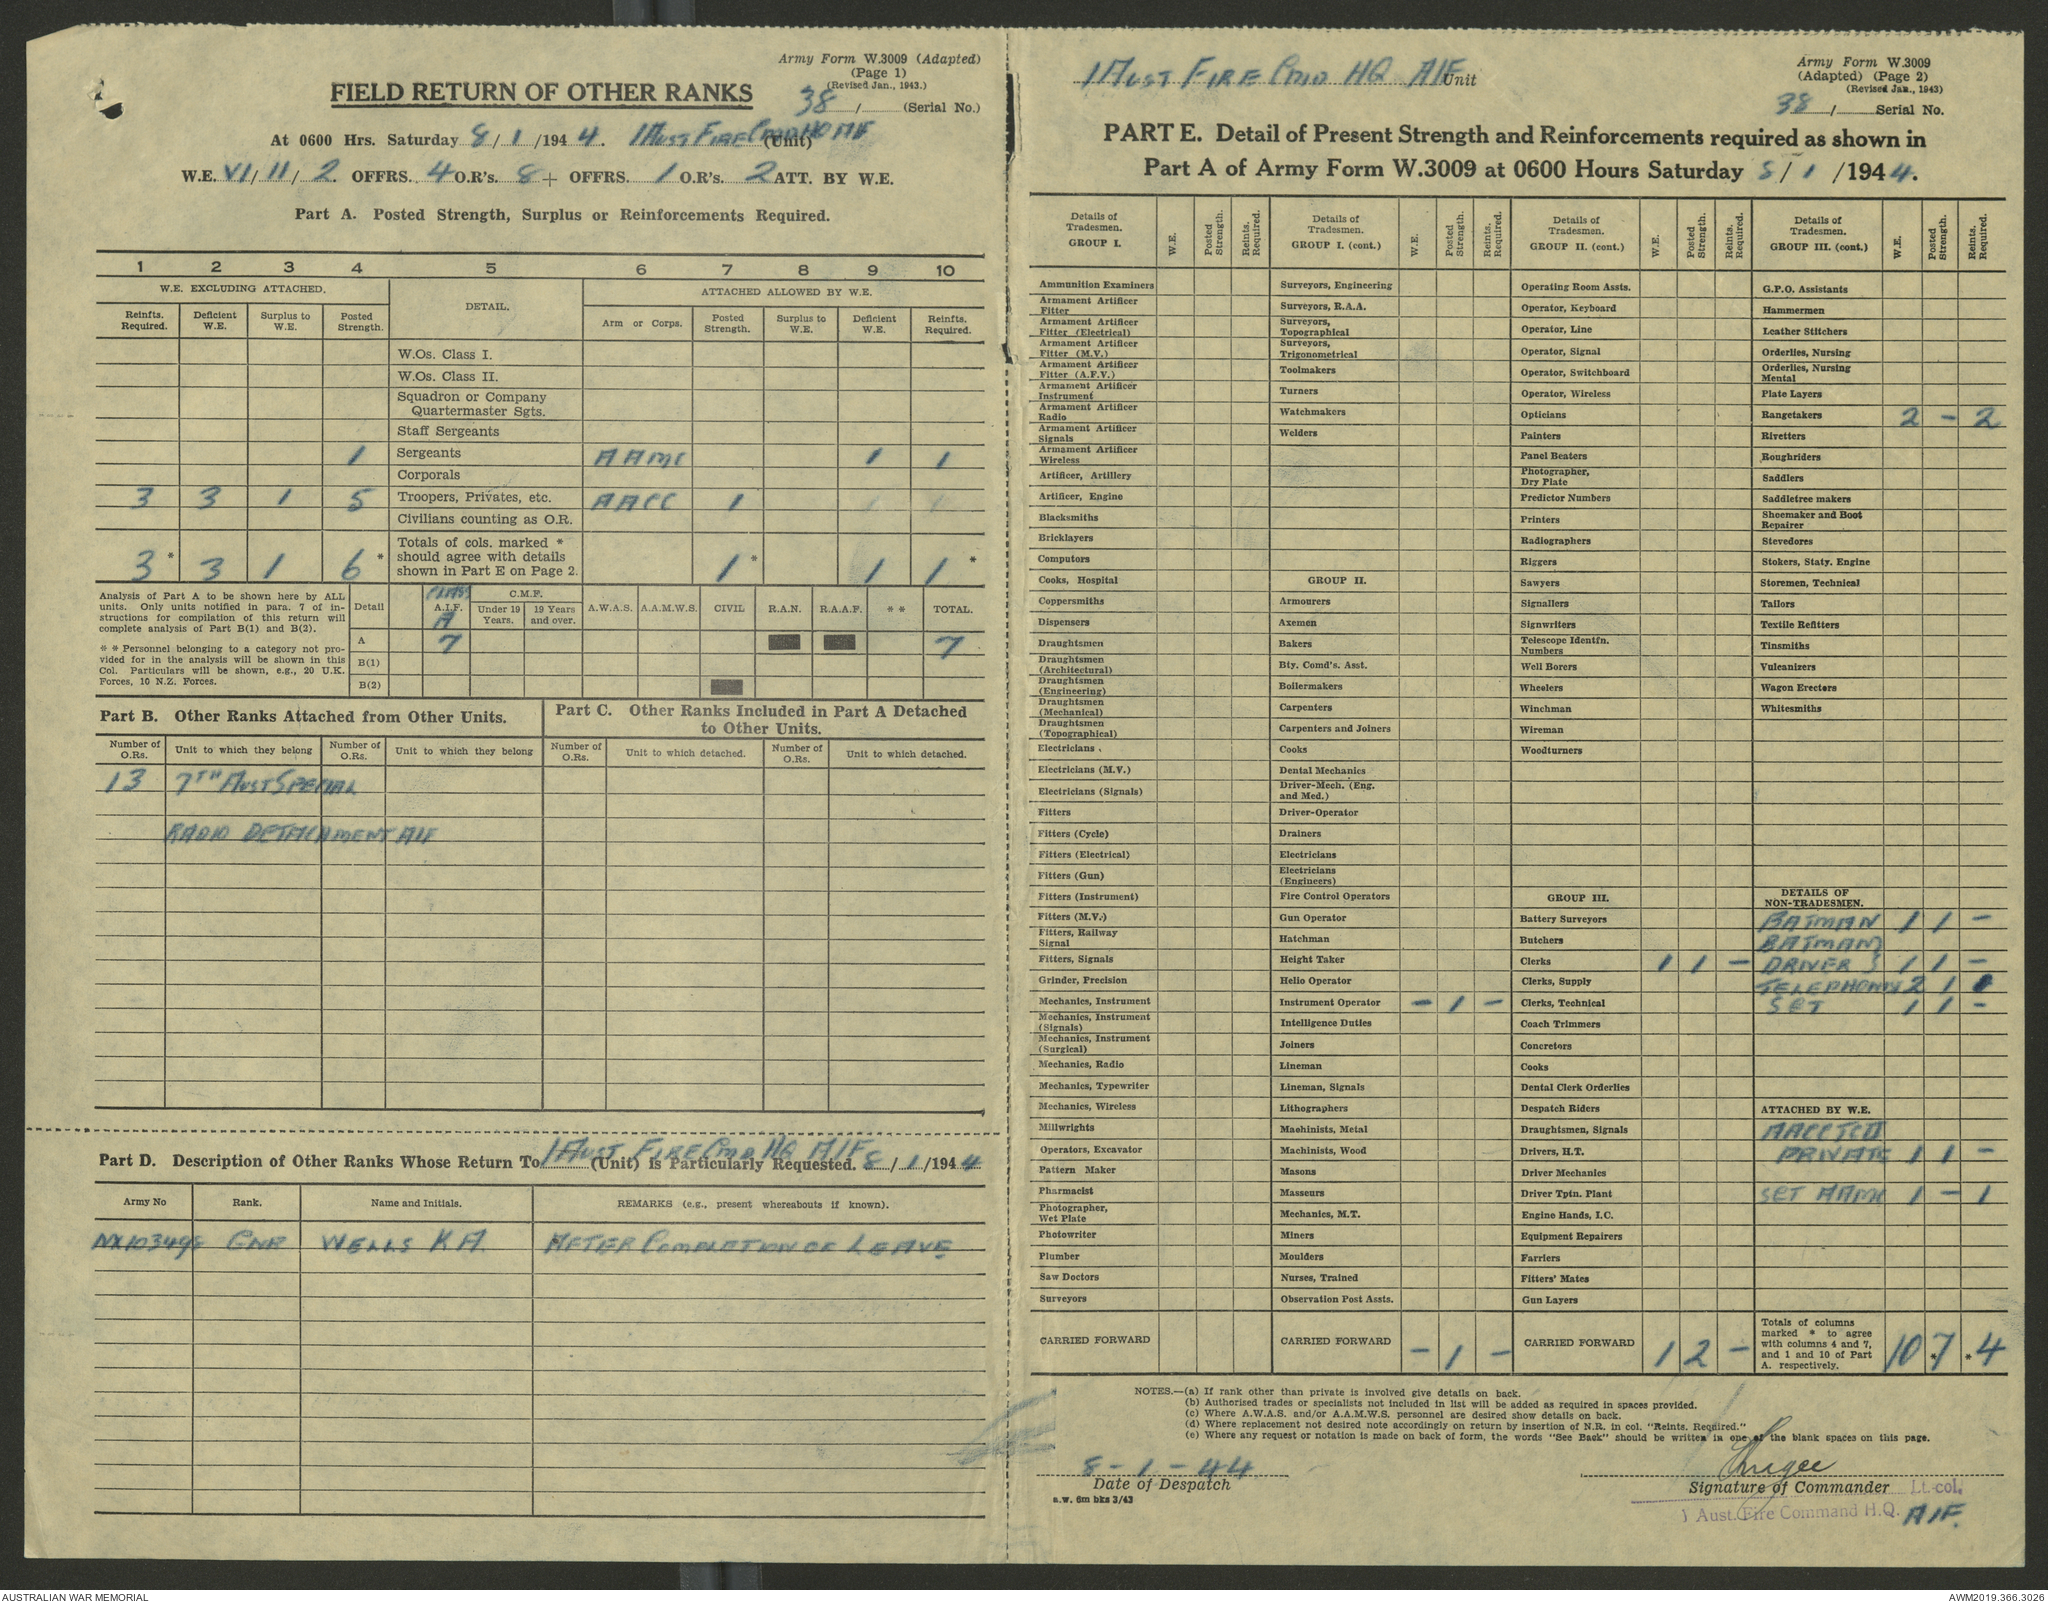 Army Form W.3009 (Adapted)
(Page 1)
(Revised Jan., 1943.)
FIELD RETURN OF OTHER RANKS
38 / (Serial No.)
At 0600 Hrs. Saturday 8 / 1 /194 4. 1 AUST FIRE CMD HQ AIF (Unit)
W.E. VI / II / 2. OFFRS. 4 O.R's. 8 + OFFRS. 1 O.R's. 2 ATT. BY W.E.
Part A. Posted Strength, Surplus or Reinforcements Required.
1 2 3 4 5 6 7 8 9 10
W.E. EXCLUDING ATTACHED. DETAIL. ATTACHED ALLOWED BY W.E.
Reinfts. Required. Deficient W.E. Surplus to W.E. Posted Strength. Arm or Corps. Posted Strength. Surplus to W.E. Deficient W.E. Reinfts. Required.
W.Os. Class I.
W.Os. Class II.
Squadron or Company
Quartermaster Sgts.
Staff Sergeants
1 Sergeants AAMC 1 1
Corporals
3 3 1 5 Troopers, Privates, etc. AACC 1 1 1
Civilians counting as O.R.
Totals of cols. marked *
should agree with details
shown in Part E on Page 2.
3 * 3 1 6 * 1 * 1 1 *
Analysis of Part A to be shown here by ALL
units. Only units notified in para. 7 of in-
structions for compilation of this return will
complete analysis of Part B(1) and B(2).
* * Personnel belonging to a category not pro-
vided for in the analysis will be shown in this
Col. Particulars will be shown, e.g., 20 U.K.
Forces, 10 N.Z. Forces.
Detail CLASS A.I.F. A C.M.F. Under 19 Years. 19 Years and over. A.W.A.S. A.A.M.W.S. CIVIL R.A.N. R.A.A.F. * * TOTAL.
A 7 7
B(1)
B(2)
Part B. Other Ranks Attached from Other Units.
Number of O.Rs. Unit to which they belong Number of O.Rs. Unit to which they belong
13 7TH AUST SPECIAL
RADIO DETACHMENT AIF
Part C. Other Ranks Included in Part A Detached
to Other Units.
Number of O.Rs. Unit to which detached. Number of O.Rs. Unit to which detached.
Part D. Description of Other Ranks Whose Return To 1 AUST FIRE CMD HQ AIF (Unit) is Particularly Requested. 8 / 1 /194 4
Army No Rank. Name and Initials. REMARKS (e.g., present whereabouts if known).
GNR WELLS K A. AFTER COMPLETION OF LEAVE
1 AUST FIRE CMD HQ AIF Unit
Army Form W.3009
(Adapted) (Page 2)
(Revised Jan., 1943)
38 / Serial No.
PART E. Detail of Present Strength and Reinforcements required as shown in
Part A of Army Form W.3009 at 0600 Hours Saturday 8 / 1 /194 4.
Details of Tradesmen. GROUP I. W.E. Posted Strength. Reinfts. Required.
Ammunition Examiners
Armament Artificer Fitter
Armament Artificer Fitter (Electrical)
Armament Artificer Fitter (M.V.)
Armament Artificer Fitter (A.F.V.)
Armament Artificer Instrument
Armament Artificer Radio
Armament Artificer Signals
Armament Artificer Wireless
Artificer, Artillery
Artificer, Engine
Blacksmiths
Bricklayers
Computors
Cooks, Hospital
Coppersmiths
Dispensers
Draughtsmen
Draughtsmen (Architectural)
Draughtsmen (Engineering)
Draughtsmen (Mechanical)
Draughtsmen (Topographical)
Electricians
Electricians (M.V.)
Electricians (Signals)
Fitters
Fitters (Cycle)
Fitters (Electrical)
Fitters (Gun)
Fitters (Instrument)
Fitters (M.V.)
Fitters, Railway Signal
Fitters, Signals
Grinder, Precision
Mechanics, Instrument
Mechanics, Instrument (Signals)
Mechanics, Instrument (Surgical)
Mechanics, Radio
Mechanics, Typewriter
Mechanics, Wireless
Millwrights
Operators, Excavator
Pattern Maker
Pharmacist
Photographer, Wet Plate
Photowriter
Plumber
Saw Doctors
Surveyors
CARRIED FORWARD
Details of Tradesmen. GROUP I. (cont.) W.E. Posted Strength. Reinfts. Required.
Surveyors, Engineering
Surveyors, R.A.A.
Surveyors, Topographical
Surveyors, Trigonometrical
Toolmakers
Turners
Watchmakers
Welders
GROUP II.
Armourers
Axemen
Bakers
Bty. Comd's. Asst.
Boilermakers
Carpenters
Carpenters and Joiners
Cooks
Dental Mechanics
Driver-Mech. (Eng. and Med.)
Driver-Operator
Drainers
Electricians
Electricians (Engineers)
Fire Control Operators
Gun Operator
Hatchman
Height Taker
Helio Operator
Instrument Operator – 1 –
Intelligence Duties
Joiners
Lineman
Lineman, Signals
Lithographers
Machinists, Metal
Machinists, Wood
Masons
Masseurs
Mechanics, M.T.
Miners
Moulders
Nurses, Trained
Observation Post Assts.
CARRIED FORWARD – 1 –
Details of Tradesmen. GROUP II. (cont.) W.E. Posted Strength. Reinfts. Required.
Operating Room Assts.
Operator, Keyboard
Operator, Line
Operator, Signal
Operator, Switchboard
Operator, Wireless
Opticians
Painters
Panel Beaters
Photographer, Dry Plate
Predictor Numbers
Printers
Radiographers
Riggers
Sawyers
Signallers
Signwriters
Telescope Identfn. Numbers
Well Borers
Wheelers
Winchman
Wireman
Woodturners
GROUP III.
Battery Surveyors
Butchers
Clerks 1 1 –
Clerks, Supply
Clerks, Technical
Coach Trimmers
Concretors
Cooks
Dental Clerk Orderlies
Despatch Riders
Draughtsmen, Signals
Drivers, H.T.
Driver Mechanics
Driver Tptn. Plant
Engine Hands, I.C.
Equipment Repairers
Farriers
Fitters' Mates
Gun Layers
CARRIED FORWARD 1 2 –
Details of Tradesmen. GROUP III. (cont.) W.E. Posted Strength. Reinfts. Required.
G.P.O. Assistants
Hammermen
Leather Stitchers
Orderlies, Nursing
Orderlies, Nursing Mental
Plate Layers
Rangetakers 2 – 2
Rivetters
Roughriders
Saddlers
Saddletree makers
Shoemaker and Boot Repairer
Stevedores
Stokers, Staty. Engine
Storemen, Technical
Tailors
Textile Refitters
Tinsmiths
Vulcanizers
Wagon Erectors
Whitesmiths
DETAILS OF
NON-TRADESMEN.
BATMAN 1 1 –
BATMAN }
DRIVER } 1 1 –
TELEPHONISTS 2 1 1
SGT 1 1 –
ATTACHED BY W.E.
PRIVATE 1 1 –
SGT AAMC 1 – 1
Totals of columns
marked * to agree
with columns 4 and 7,
and 1 and 10 of Part
A. respectively.
10 * 7 * 4
NOTES.—(a) If rank other than private is involved give details on back.
(b) Authorised trades or specialists not included in list will be added as required in spaces provided.
(c) Where A.W.A.S. and/or A.A.M.W.S. personnel are desired show details on back.
(d) Where replacement not desired note accordingly on return by insertion of N.R. in col. "Reints. Required."
(e) Where any request or notation is made on back of form, the words "See Back" should be written in one of the blank spaces on this page.
8 - 1 - 44
Date of Despatch
a.w. 6m bks 3/43
Signature of Commander Lt.-col.
1 Aust. Fire Command H.Q. AIF.
AUSTRALIAN WAR MEMORIAL
AWM2019.366.3026